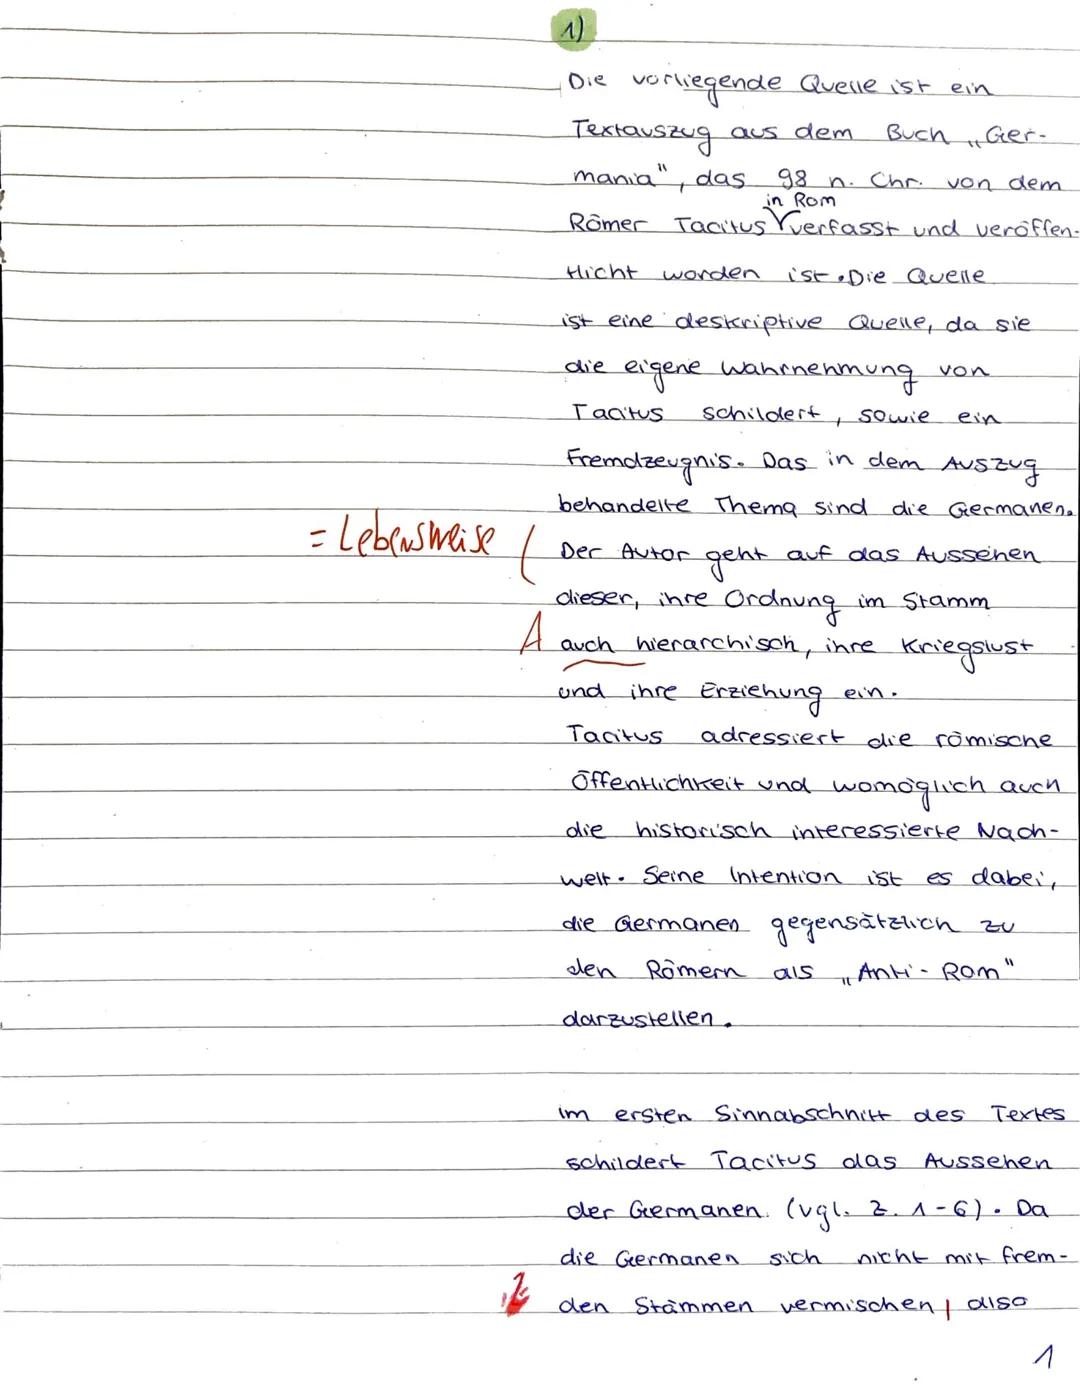 1)
Die vorliegende Quelle ist ein
Textauszug aus dem Buch „Ger-
mania", das 98 n. Chr. von dem
in Rom
Römer Tacitus verfasst und veröffen-
tlicht worden ist. Die Quelle
ist eine deskriptive Quelle, da sie
die eigene Wahrnehmung von
Tacitus schildert, sowie ein
Fremdzeugnis. Das in dem Auszug
behandelte Thema sind die Germanen.
= Lebensweise ( Der Autor geht auf das Aussehen
dieser, ihre Ordnung im Stamm
A auch hierarchisch, ihre Kriegslust
und ihre Erziehung ein.
Tacitus adressiert die römische
Öffentlichkeit und womöglich auch
die historisch interessierte Nach-
welt. Seine Intention ist es dabei,
die Germanen gegensätzlich zu
den Römern als „Anti-Rom"
darzustellen.
Im ersten Sinnabschnitt des Textes
schildert Tacitus das Aussehen
der Germanen. (vgl. Z. 1-6). Da
die Germanen sich nicht mit frem-
den Stämmen vermischen, also
1